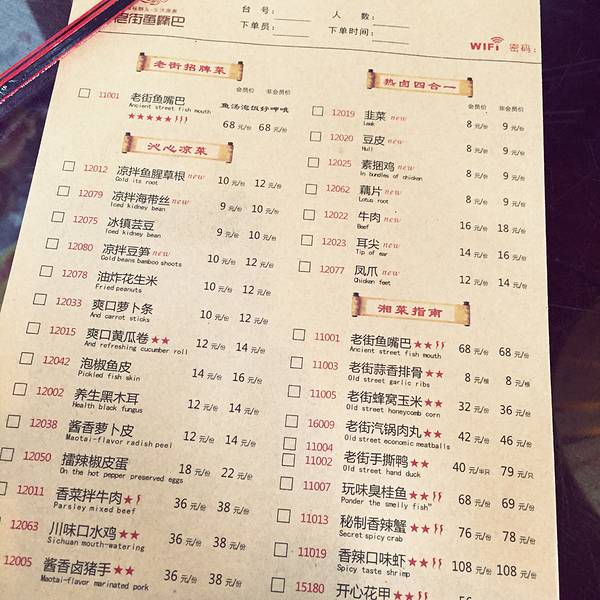 老街鱼嘴巴
台 号:
人 数:
下单员:
下单时间:
WiFi 密码:
老街招牌菜
会员价 非会员价
11001 老街鱼嘴巴 鱼汤泡饭好呷哦
Ancient street fish mouth
★★★★★ 68元/份 68元/份
沁心凉菜
会员价 非会员价
12012 凉拌鱼腥草根 new 10元/份 12元/份
Cold its root
12079 凉拌海带丝 new 9元/份 10元/份
Iced kidney bean
12075 冰镇芸豆 9元/份 10元/份
Iced kidney bean
12080 凉拌豆笋 new 10元/份 12元/份
Cold beans bamboo shoots
12078 油炸花生米 10元/份 12元/份
Fried peanuts
12033 爽口萝卜条 10元/份 12元/份
And carrot sticks
12015 爽口黄瓜卷★★ 12元/份 14元/份
And refreshing cucumber roll
12042 泡椒鱼皮 14元/份 16元/份
Pickled fish skin
12002 养生黑木耳 12元/份 14元/份
Health black fungus
12038 酱香萝卜皮 12元/份 14元/份
Maotai-flavor radish peel
12050 擂辣椒皮蛋 18元/份 22元/份
On the hot pepper preserved eggs
12011 香菜拌牛肉★ 36元/份 38元/份
Parsley mixed beef
12063 川味口水鸡★★ 36元/份 38元/份
Sichuan mouth-watering
12005 酱香卤猪手★★ 36元/份 38元/份
Maotai-flavor marinated pork
热卤四合一
会员价 非会员价
12019 韭菜 new 8元/份 9元/份
Leek
12020 豆皮 new 8元/份 9元/份
Null
12025 素捆鸡 new 8元/份 9元/份
In bundles of chicken
12062 藕片 new 8元/份 9元/份
Lotus root
12022 牛肉 new 16元/份 18元/份
Beef
12023 耳尖 new 14元/份 16元/份
Tip of ear
12077 凤爪 new 12元/份 14元/份
Chicken feet
湘菜指南
11001 老街鱼嘴巴★★ 68元/份 68元/份
Ancient street fish mouth
11003 老街蒜香排骨★★ 8元/根 8元/根
Old street garlic ribs
11005 老街蜂窝玉米★★ 32元/份 36元/份
Old street honeycomb corn
16009 老街汽锅肉丸★★ 42元/份 46元/份
Old street economic meatballs
11004
11002 老街手撕鸭★★ 40元/半只 79元/只
Old street hand duck
11007 玩味臭桂鱼★★ 68元/份 69元/份
Ponder the smelly fish"
11013 秘制香辣蟹★★ 76元/份 78元/份
Secret spicy crab
11019 香辣口味虾★★ 108元/份 108元/份
Spicy taste shrimp
15180 开心花甲★★